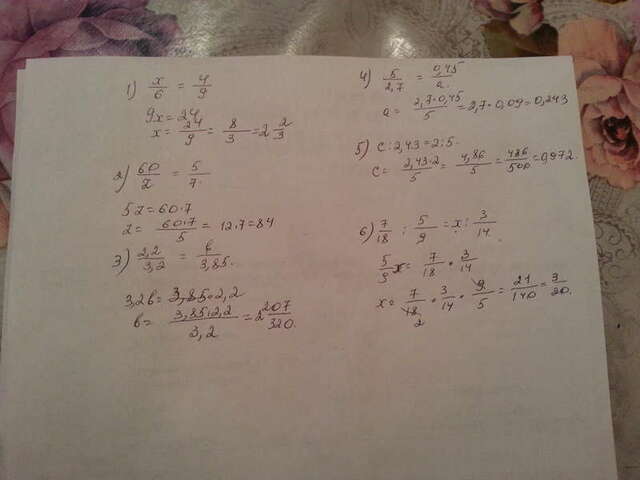 1) x/6 = 4/9
9x = 24
x = 24/9 = 8/3 = 2 2/3
2) 60/z = 5/7
5z = 60·7
z = 60·7/5 = 12·7 = 84
3) 2,2/3,2 = b/3,85.
3,2b = 3,85·2,2
b = 3,85·2,2/3,2 = 2 207/320.
4) 5/2,7 = 0,45/a.
a = 2,7·0,45/5 = 2,7·0,09 = 0,243
5) c : 2,43 = 2 : 5.
c = 2,43·2/5 = 4,86/5 = 486/500 = 0,972.
6) 7/18 : 5/9 = x : 3/14
5/9 x = 7/18 · 3/14
x = 7/18 · 3/14 · 9/5 = 21/140 = 3/20.
2